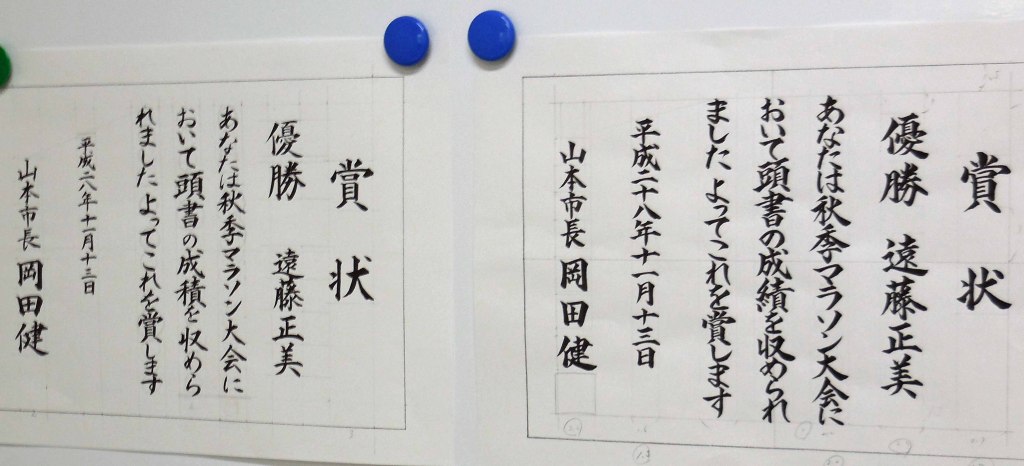 賞状
優勝 遠藤正美
あなたは秋季マラソン大会に
おいて頭書の成績を収められ
ました よってこれを賞します
平成二十八年十一月十三日
山本市長 岡田健
賞状
優勝 遠藤正美
あなたは秋季マラソン大会に
おいて頭書の成積を収めら
れました よってこれを賞します
平成二八年十一月十三日
山本市長 岡田健